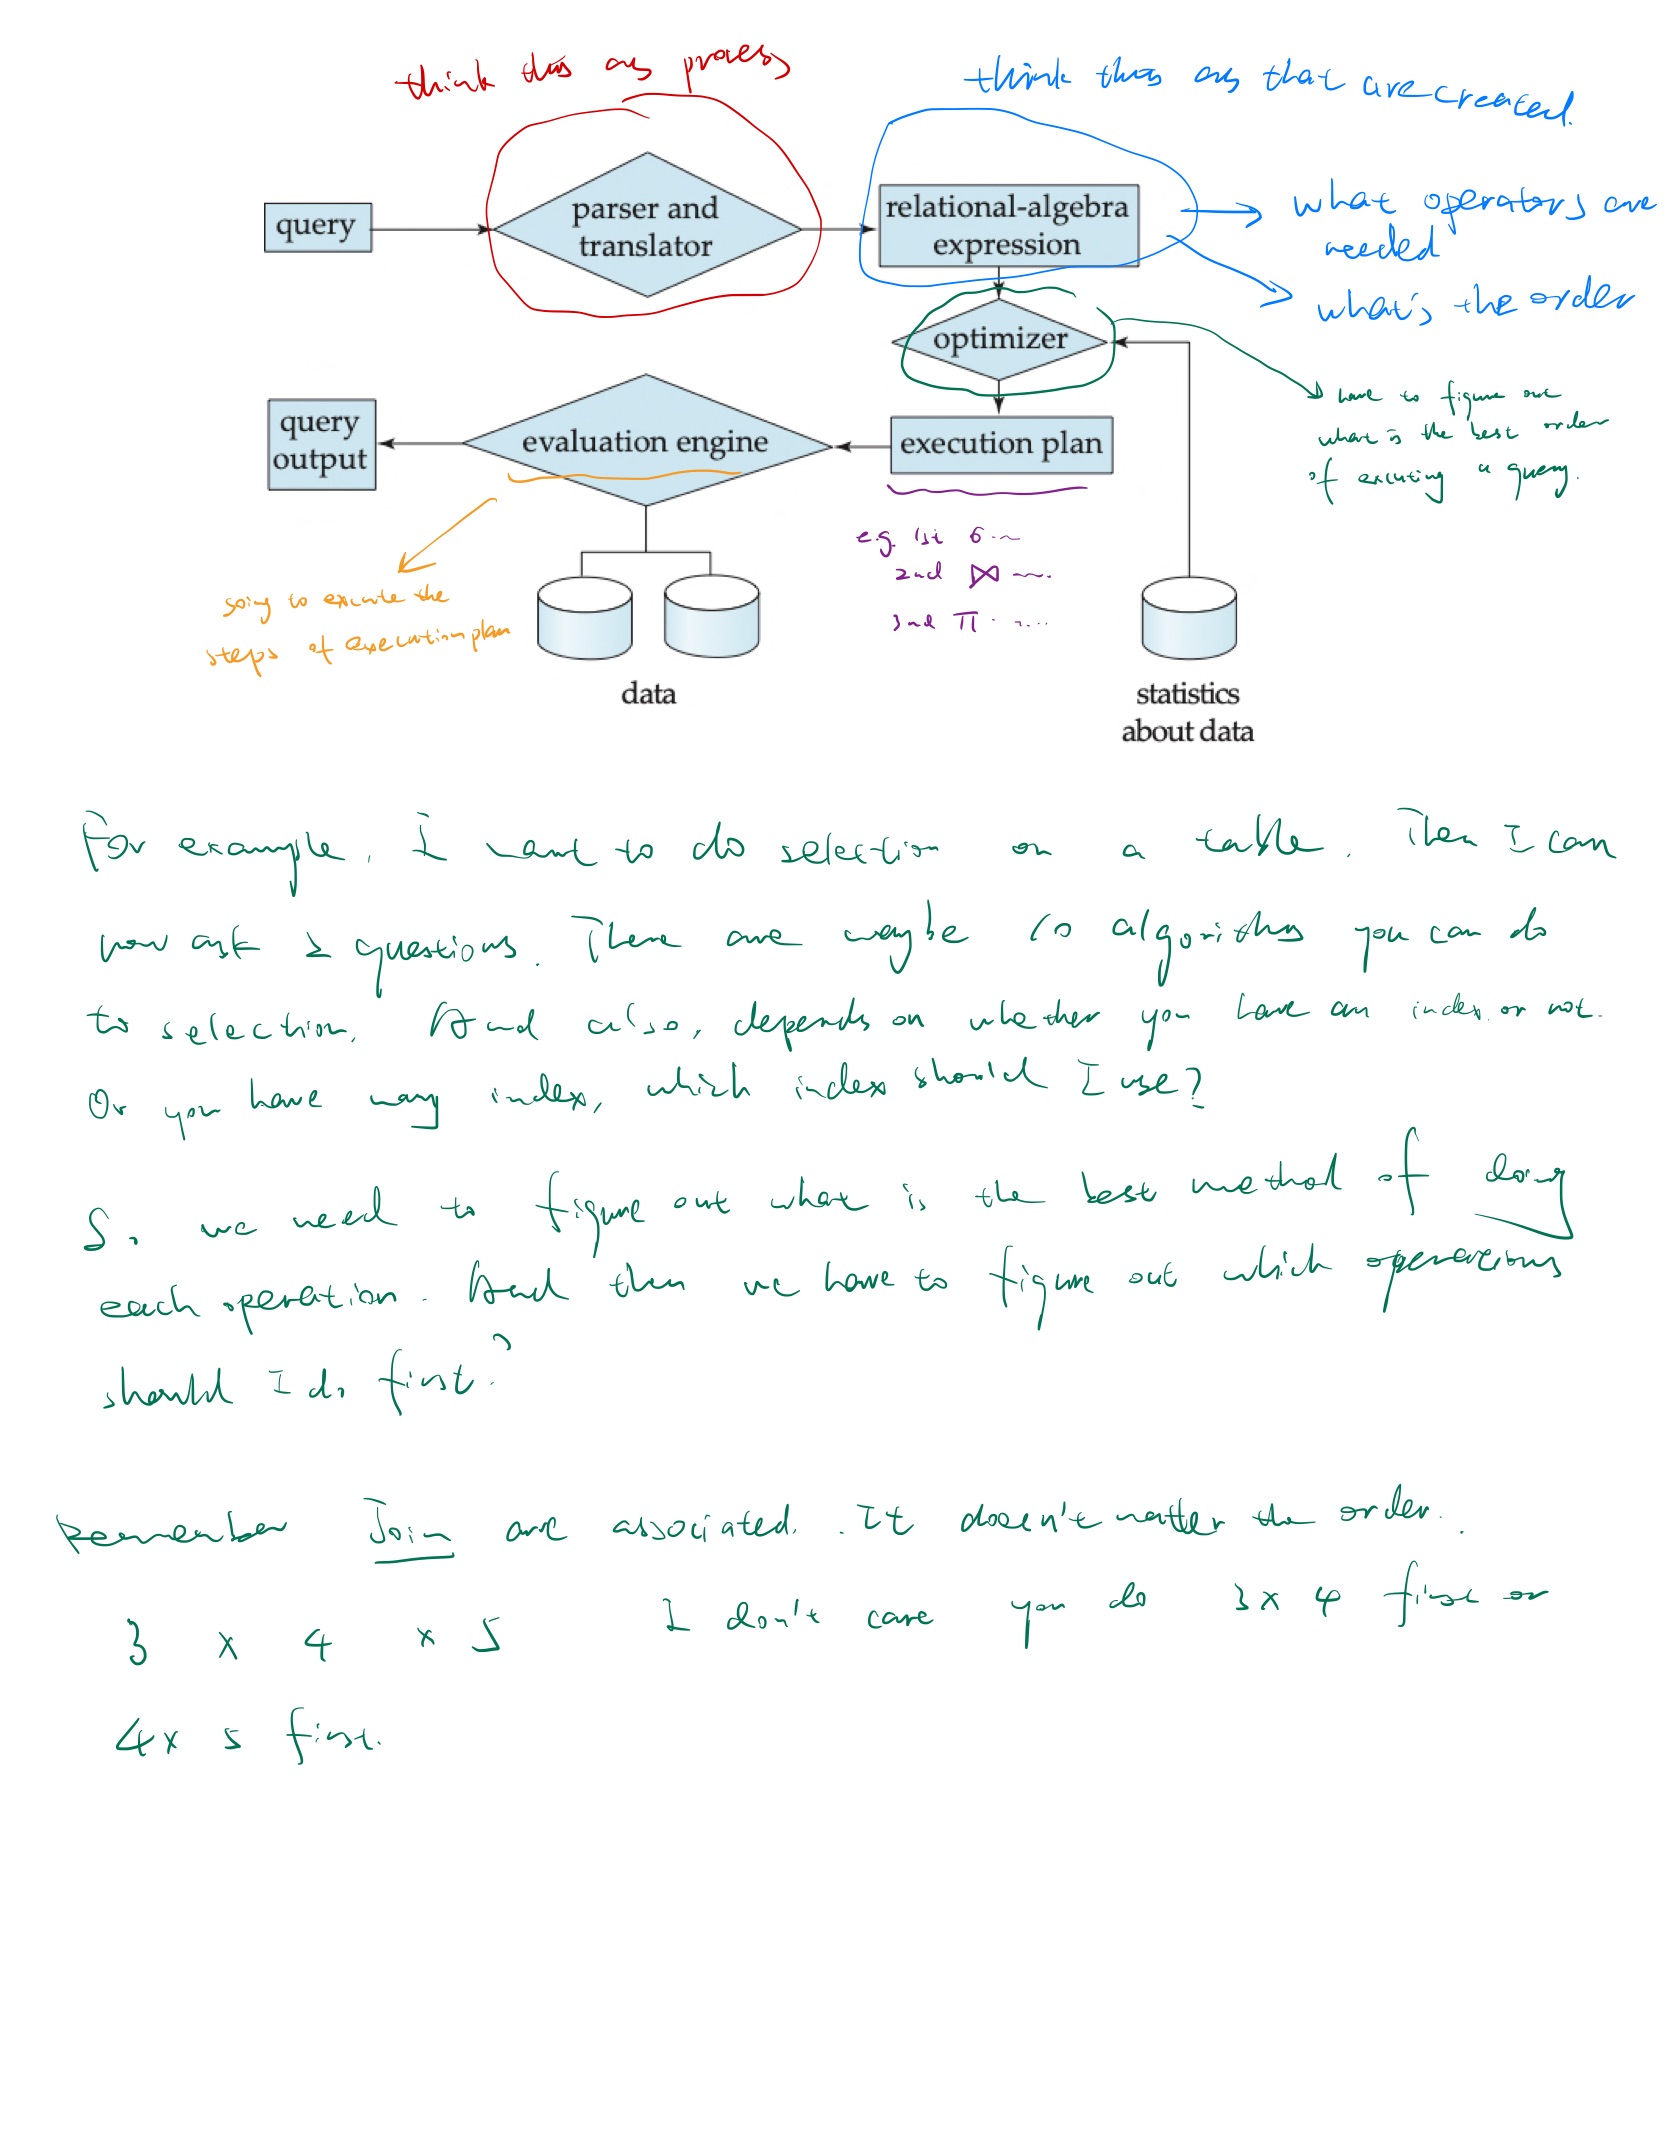 think this as process
think this as that are created.
query
parser and
translator
relational-algebra
expression
what operators are
needed
what's the order
optimizer
have to figure out
what is the best order
of excuting a query.
query
output
evaluation engine
execution plan
e.g. 1st σ
2nd ⋈
3nd Π
going to excute the
steps of execution plan
data
statistics
about data
For example, I want to do selection on a table. Then I can
now ask 2 questions. There are maybe 10 algorithms you can do
to selection. And also, depends on whether you have an index or not.
Or you have many index, which index should I use?
So we need to figure out what is the best method of doing
each operation. And then we have to figure out which operations
should I do first?
Remember Join are associated. It doesn't matter the order.
3 x 4 x 5 I don't care you do 3 x 4 first or
4 x 5 first.